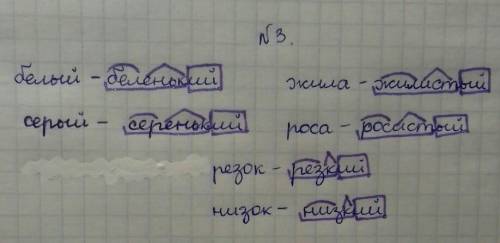 №3.
белый – беленький
жила – жилистый
серый – серенький
роса – росистый
резок – резкий
низок – низкий